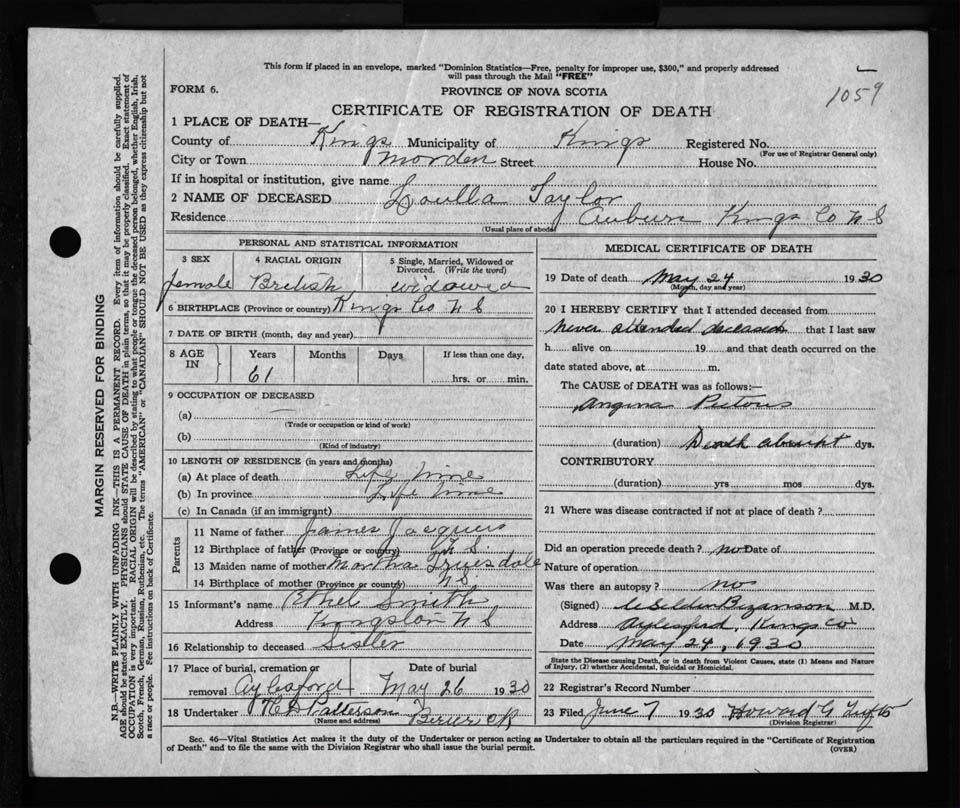 This form if placed in an envelope, marked "Dominion Statistics—Free, penalty for improper use, $300," and properly addressed
will pass through the Mail "FREE"
1059
FORM 6.
PROVINCE OF NOVA SCOTIA
CERTIFICATE OF REGISTRATION OF DEATH
1 PLACE OF DEATH—
County of Kings Municipality of Kings Registered No.
(For use of Registrar General only)
City or Town Morden Street House No.
If in hospital or institution, give name
2 NAME OF DECEASED Louella Taylor
Residence Auburn Kings Co N S
(Usual place of abode)
PERSONAL AND STATISTICAL INFORMATION
3 SEX
female
4 RACIAL ORIGIN
British
5 Single, Married, Widowed or
Divorced. (Write the word)
widowed
6 BIRTHPLACE (Province or country) Kings Co N S
7 DATE OF BIRTH (month, day and year)
8 AGE IN
Years Months Days If less than one day,
61 hrs. or min.
9 OCCUPATION OF DECEASED
(a) —
(Trade or occupation or kind of work)
(b)
(Kind of industry)
10 LENGTH OF RESIDENCE (in years and months)
(a) At place of death Life time
(b) In province Life time
(c) In Canada (if an immigrant)
Parents
11 Name of father James
12 Birthplace of father (Province or country) N. S.
13 Maiden name of mother Martha Truesdale
14 Birthplace of mother (Province or country) N S.
15 Informant's name Ethel Smith
Address Kingston N S
16 Relationship to deceased Sister
17 Place of burial, cremation or
removal Aylesford
Date of burial
May 26 1930
18 Undertaker Patterson Berwick
(Name and address)
MEDICAL CERTIFICATE OF DEATH
19 Date of death May 24 1930
(Month, day and year)
20 I HEREBY CERTIFY that I attended deceased from
never attended deceased that I last saw
h alive on 19 and that death occurred on the
date stated above, at m.
The CAUSE OF DEATH was as follows:—
Angina Pectoris
(duration) Death dys.
CONTRIBUTORY
(duration) yrs mos dys.
21 Where was disease contracted if not at place of death?
Did an operation precede death? no Date of
Nature of operation
Was there an autopsy? no
(Signed) Selden Bezanson M.D.
Address Aylesford, Kings Co
Date May 24, 1930
State the Disease causing Death, or in death from Violent Causes, state (1) Means and Nature
of Injury, (2) whether Accidental, Suicidal or Homicidal.
22 Registrar's Record Number
23 Filed June 7 1930 Howard G
(Division Registrar)
Sec. 46—Vital Statistics Act makes it the duty of the Undertaker or person acting as Undertaker to obtain all the particulars required in the "Certificate of Registration
of Death" and to file the same with the Division Registrar who shall issue the burial permit.
(OVER)
MARGIN RESERVED FOR BINDING
N.B.—WRITE PLAINLY WITH UNFADING INK—THIS IS A PERMANENT RECORD. Every item of information should be carefully supplied.
AGE should be stated EXACTLY. PHYSICIANS should STATE CAUSE OF DEATH in plain terms, so that it may be properly classified. Exact statement of
OCCUPATION is very important. RACIAL ORIGIN will be described by stating to what people or tongue the deceased person belonged, whether English, Irish,
Scotch, French, German, Russian, Ruthenian, etc. The terms "AMERICAN" or "CANADIAN" SHOULD NOT BE USED as they express citizenship but not
a race or people. See instructions on back of Certificate.